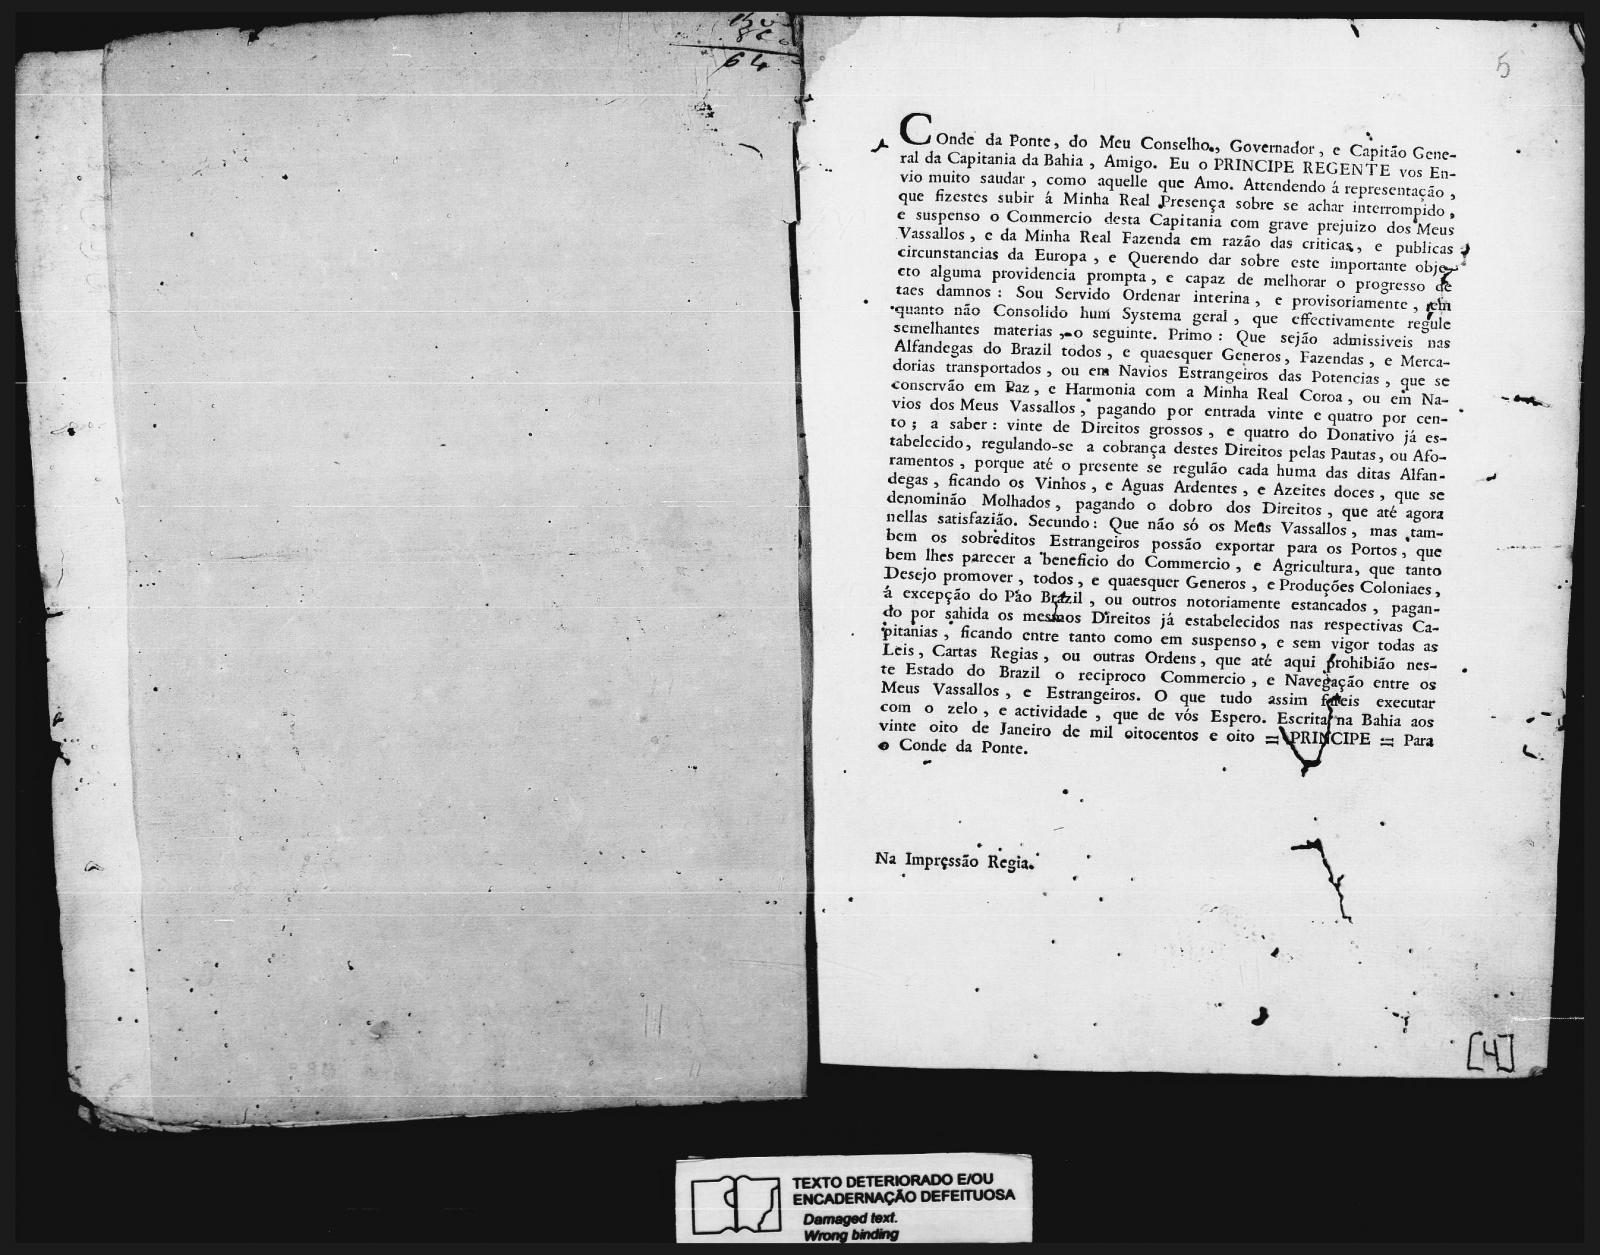 64
5
COnde da Ponte, do Meu Conselho, Governador, e Capitão Gene-
ral da Capitania da Bahia, Amigo. Eu o PRINCIPE REGENTE vos En-
vio muito saudar, como aquelle que Amo. Attendendo á representação,
que fizestes subir á Minha Real Presença sobre se achar interrompido,
e suspenso o Commercio desta Capitania com grave prejuizo dos Meus
Vassallos, e da Minha Real Fazenda em razão das criticas, e publicas
circunstancias da Europa, e Querendo dar sobre este importante obje-
cto alguma providencia prompta, e capaz de melhorar o progresso de
taes damnos: Sou Servido Ordenar interina, e provisoriamente, em
quanto não Consolido hum Systema geral, que effectivamente regule
semelhantes materias, o seguinte. Primo: Que sejão admissiveis nas
Alfandegas do Brazil todos, e quaesquer Generos, Fazendas, e Merca-
dorias transportados, ou em Navios Estrangeiros das Potencias, que se
conservão em Paz, e Harmonia com a Minha Real Coroa, ou em Na-
vios dos Meus Vassallos, pagando por entrada vinte e quatro por cen-
to; a saber: vinte de Direitos grossos, e quatro do Donativo já es-
tabelecido, regulando-se a cobrança destes Direitos pelas Pautas, ou Afo-
ramentos, porque até o presente se regulão cada huma das ditas Alfan-
degas, ficando os Vinhos, e Aguas Ardentes, e Azeites doces, que se
denominão Molhados, pagando o dobro dos Direitos, que até agora
nellas satisfazião. Secundo: Que não só os Meus Vassallos, mas tam-
bem os sobreditos Estrangeiros possão exportar para os Portos, que
bem lhes parecer a beneficio do Commercio, e Agricultura, que tanto
Desejo promover, todos, e quaesquer Generos, e Produções Coloniaes,
á excepção do Páo Brazil, ou outros notoriamente estancados, pagan-
do por sahida os mesmos Direitos já estabelecidos nas respectivas Ca-
pitanias, ficando entre tanto como em suspenso, e sem vigor todas as
Leis, Cartas Regias, ou outras Ordens, que até aqui prohibião nes-
te Estado do Brazil o reciproco Commercio, e Navegação entre os
Meus Vassallos, e Estrangeiros. O que tudo assim fareis executar
com o zelo, e actividade, que de vós Espero. Escrita na Bahia aos
vinte oito de Janeiro de mil oitocentos e oito = PRINCIPE = Para
o Conde da Ponte.
Na Impressão Regia.
[4]
TEXTO DETERIORADO E/OU
ENCADERNAÇÃO DEFEITUOSA
Damaged text.
Wrong binding